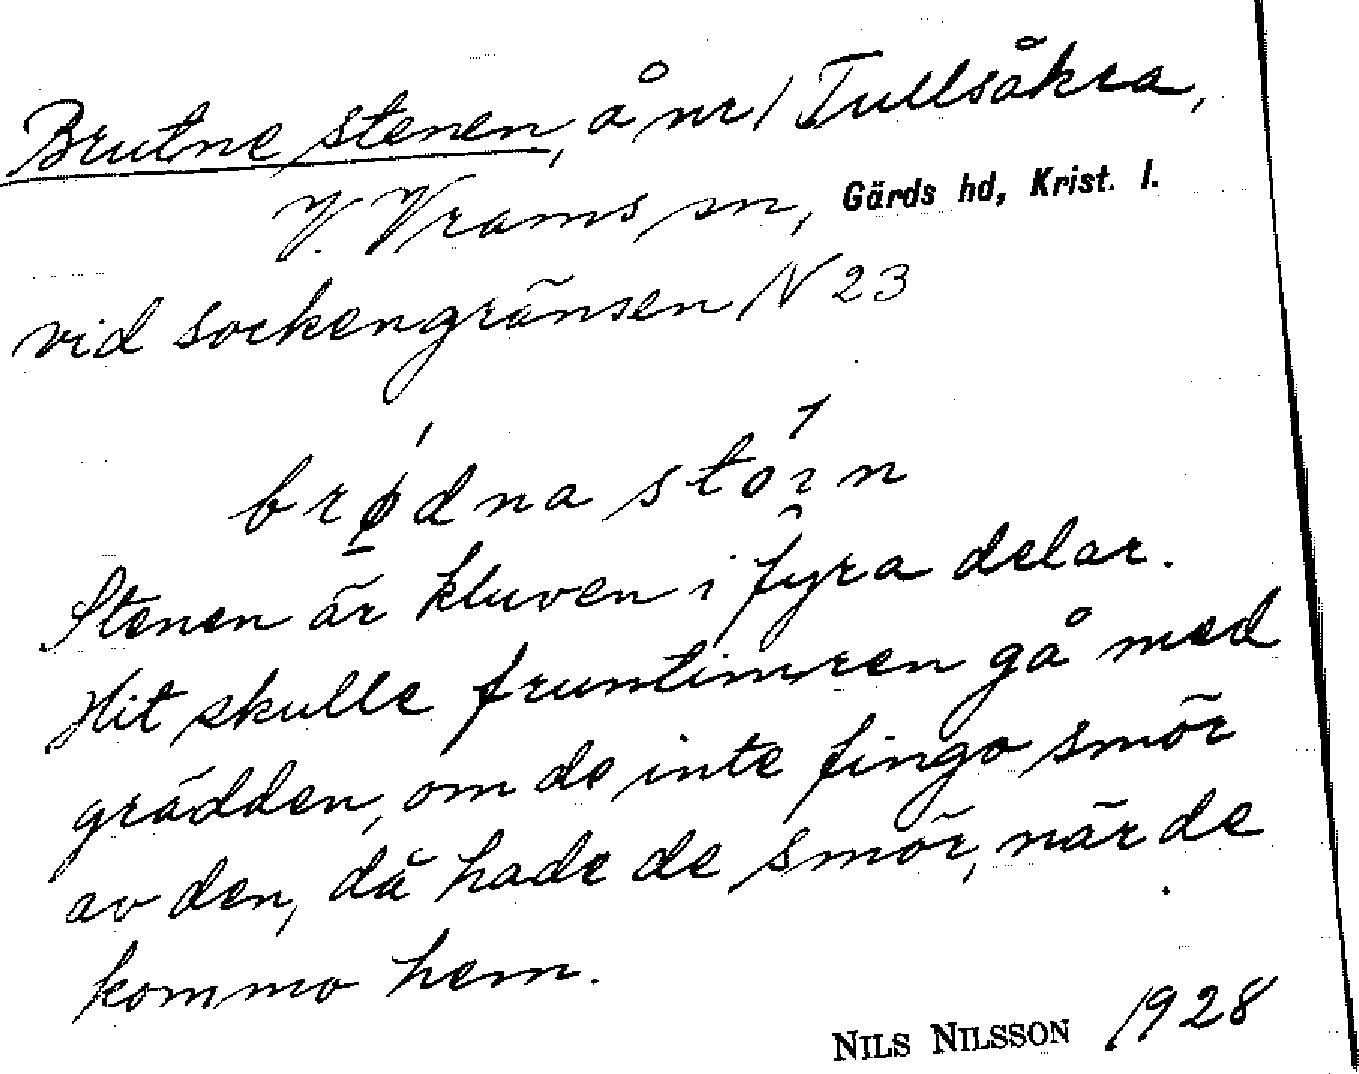 Brutne stenen, å nr 1 Tullsåkra,
V. Vrams sn, Gärds hd, Krist. l.
vid sockengränsen N 23
brødna stoin
Stenen är kluven i fyra delar.
Hit skulle fruntimren gå med
grädden, om de inte fingo smör
av den, då hade de smör, när de
kommo hem.
NILS NILSSON 1928